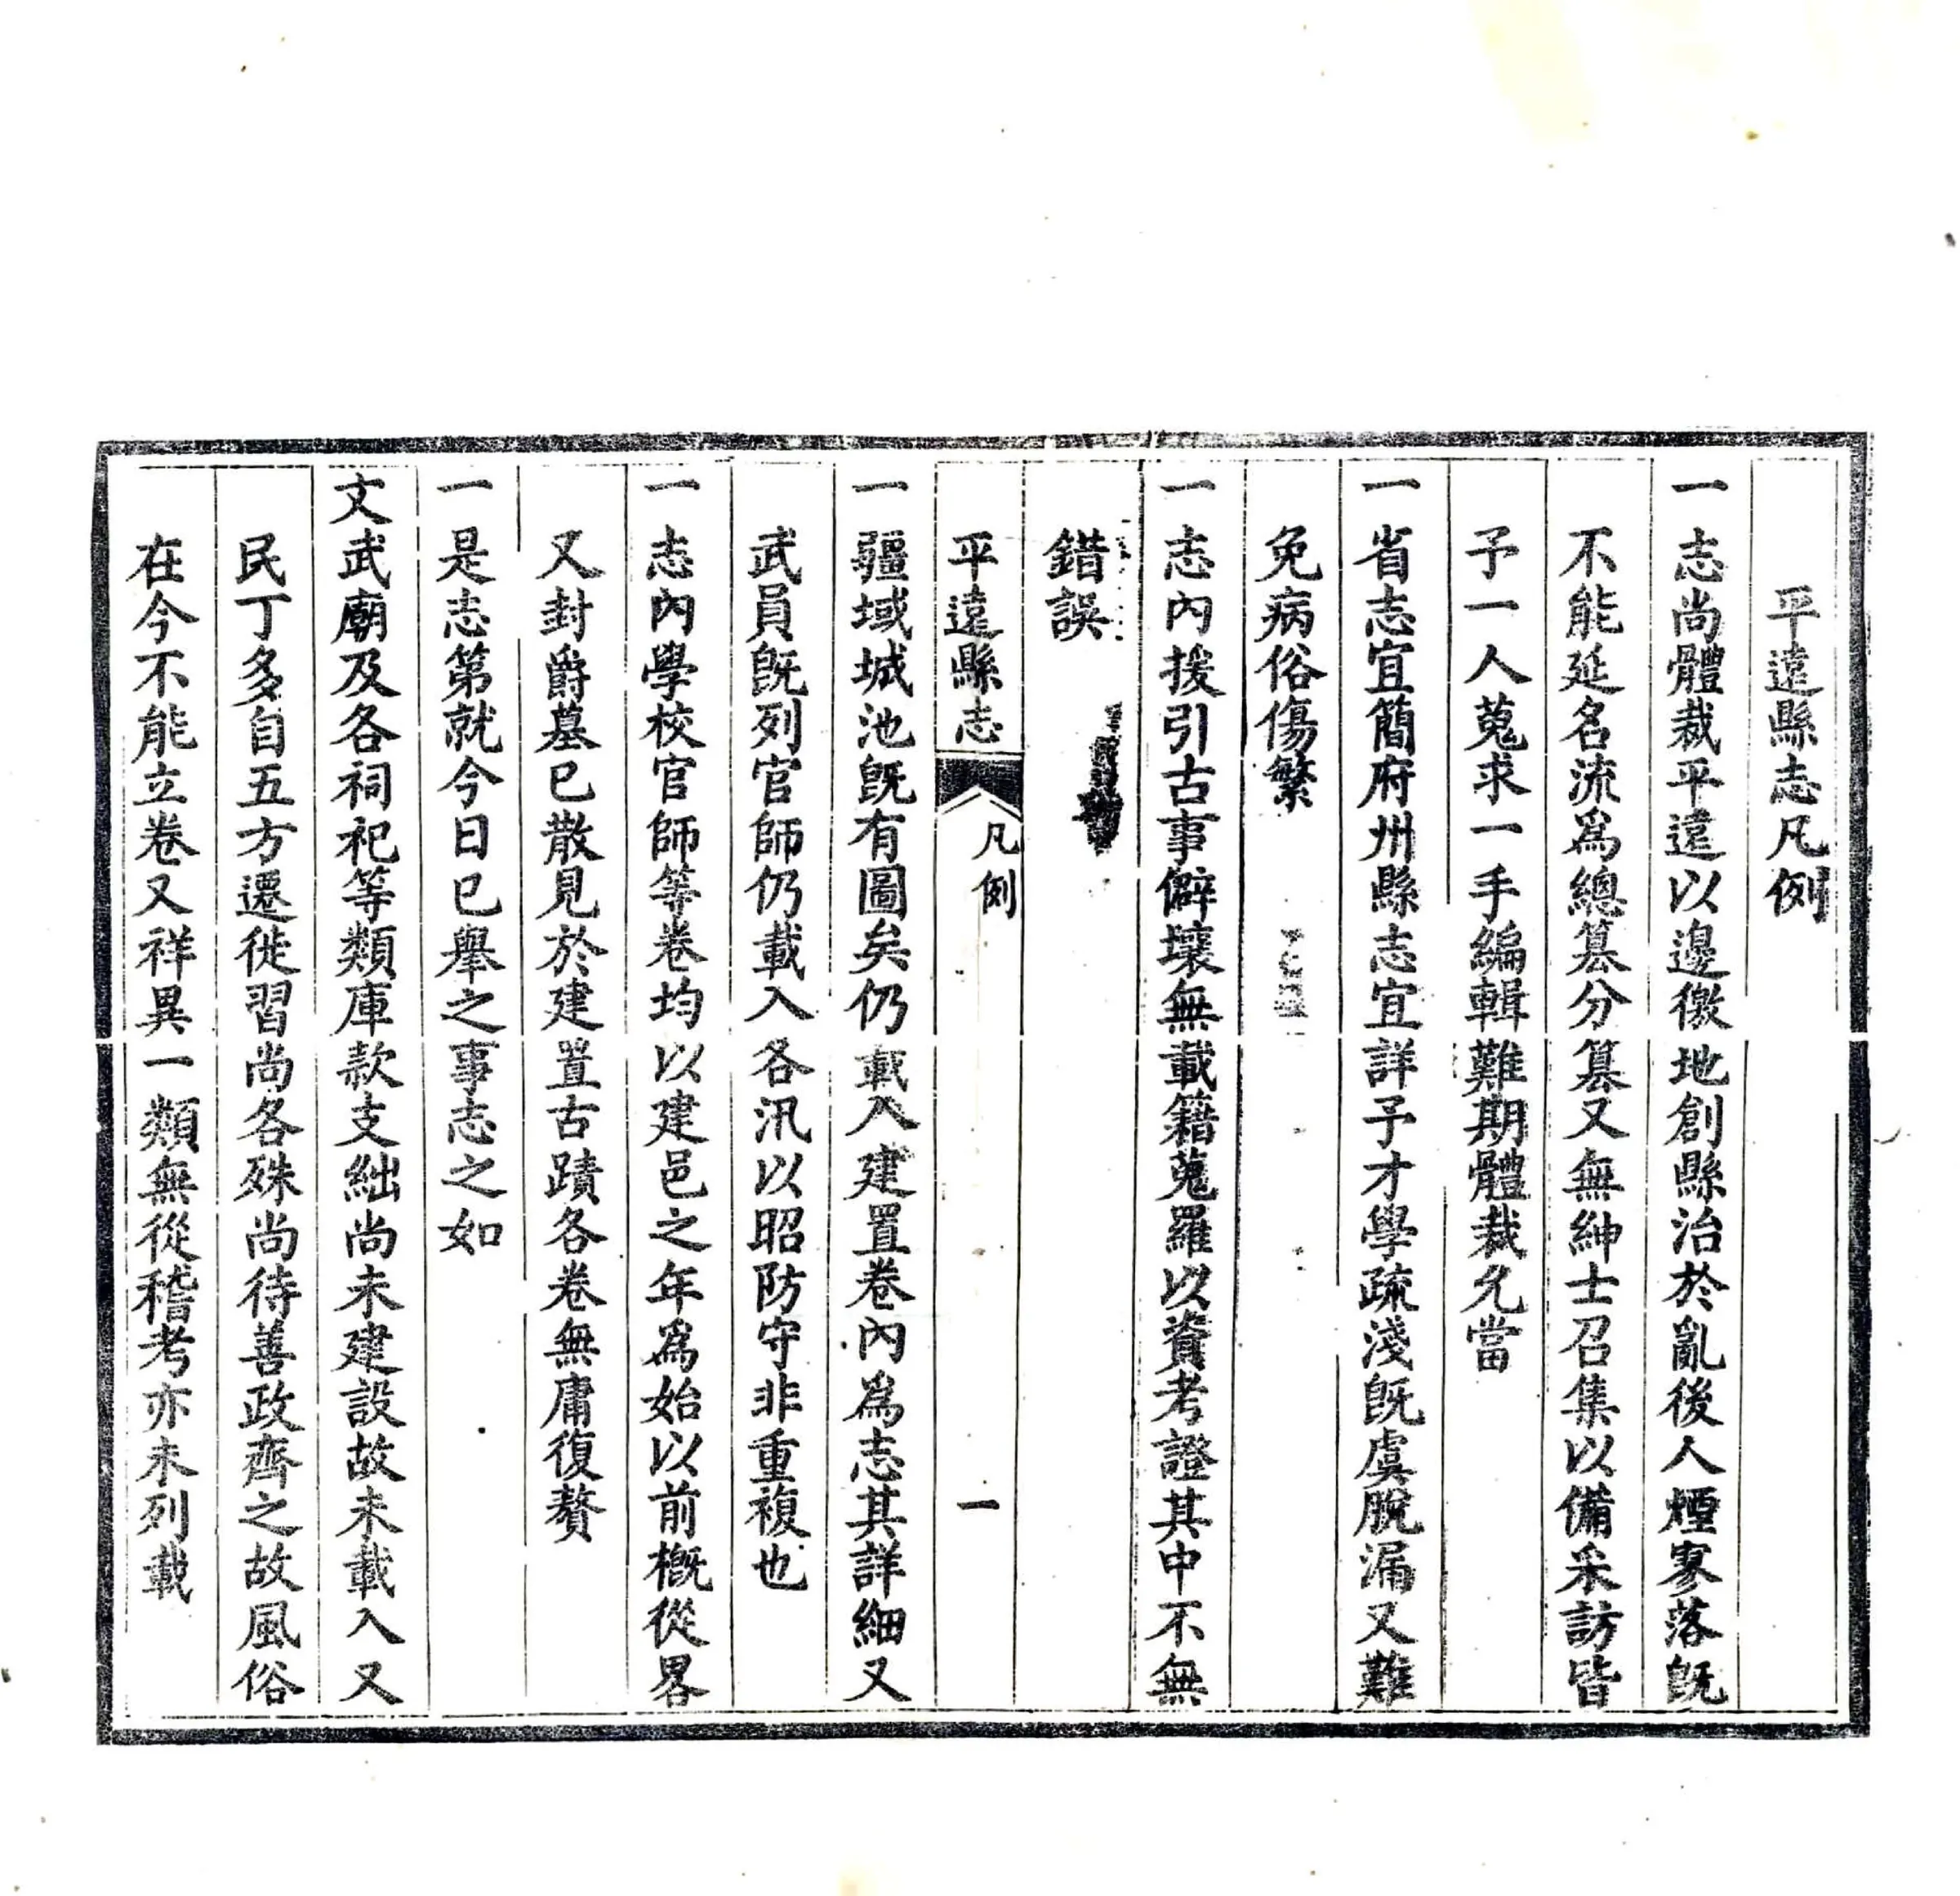 平遠縣志凡例
一志尚體裁平遠以邊徼地創縣治於亂後人煙寥落既
不能延名流爲總纂分纂又無紳士召集以備采訪皆
予一人蒐求一手編輯難期體裁允當
一省志宜簡府州縣志宜詳予才學疏淺既虞脫漏又難
免病俗傷繁
一志內援引古事僻壤無載籍蒐羅以資考證其中不無
錯誤
平遠縣志 凡例 一
一疆域城池既有圖矣仍載入建置卷內爲志其詳細又
武員既列官師仍載入各汛以昭防守非重複也
一志內學校官師等卷均以建邑之年爲始以前概從畧
又封爵墓已散見於建置古蹟各卷無庸復贅
一是志第就今日已舉之事志之如
文武廟及各祠祀等類庫款支絀尚未建設故未載入又
民丁多自五方遷徙習尚各殊尚待善政齊之故風俗
在今不能立卷又祥異一類無從稽考亦未列載